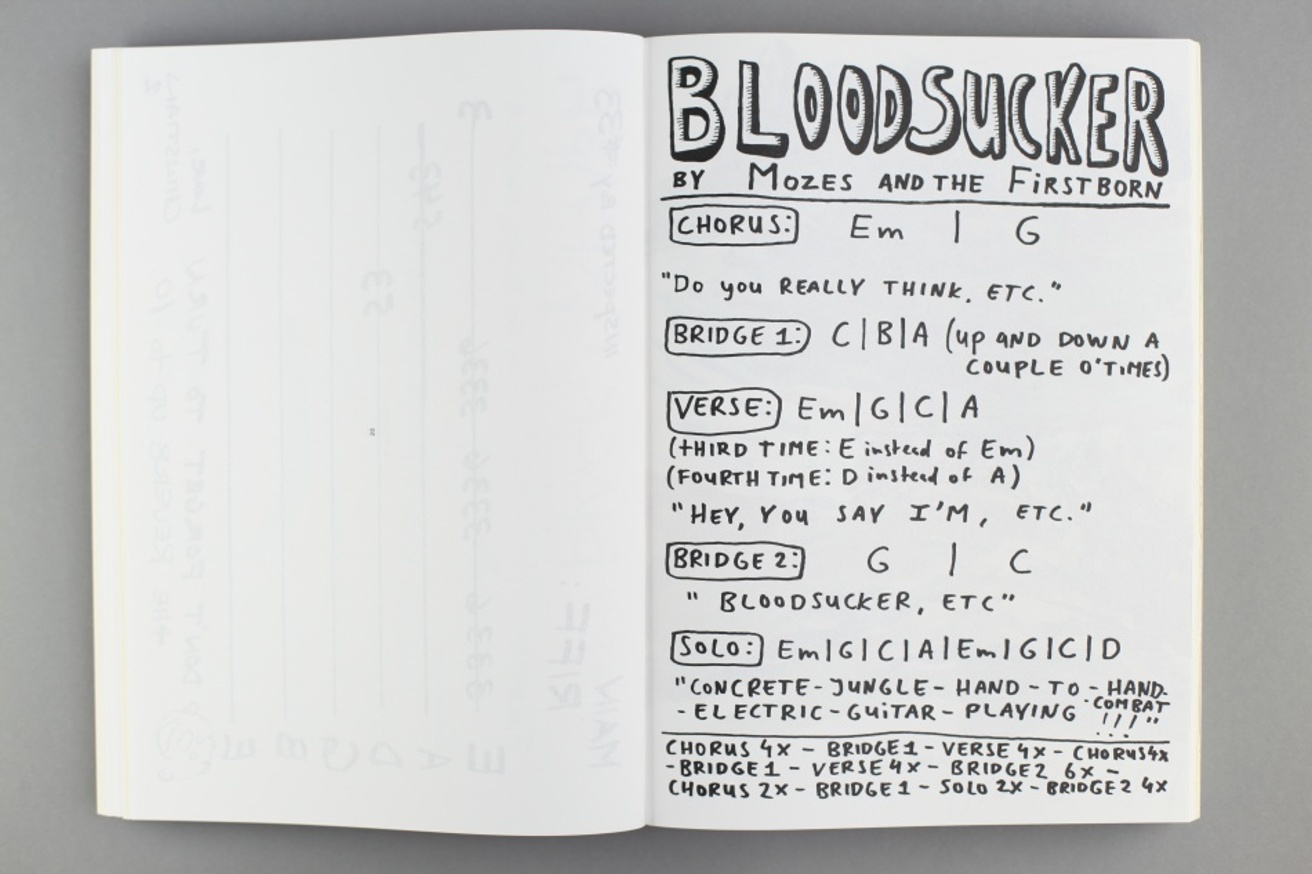 BLOODSUCKER
BY MOZES AND THE FIRSTBORN
CHORUS: Em | G
"Do you REALLY THINK, ETC."
BRIDGE 1: C | B | A (up AND DOWN A
COUPLE O'TIMES)
VERSE: Em | G | C | A
(tHIRD TIME: E instead of Em)
(FOURTH TIME: D instead of A)
"HEY, YOU SAY I'M, ETC."
BRIDGE 2: G | C
" BLOODSUCKER, ETC"
SOLO: Em | G | C | A | Em | G | C | D
"CONCRETE - JUNGLE - HAND - TO - HAND-
- ELECTRIC - GUITAR - PLAYING -COMBAT
!!!"
CHORUS 4X - BRIDGE 1 - VERSE 4X - CHORUS 4X
- BRIDGE 1 - VERSE 4X - BRIDGE 2 6X -
CHORUS 2X - BRIDGE 1 - SOLO 2X - BRIDGE 2 4X